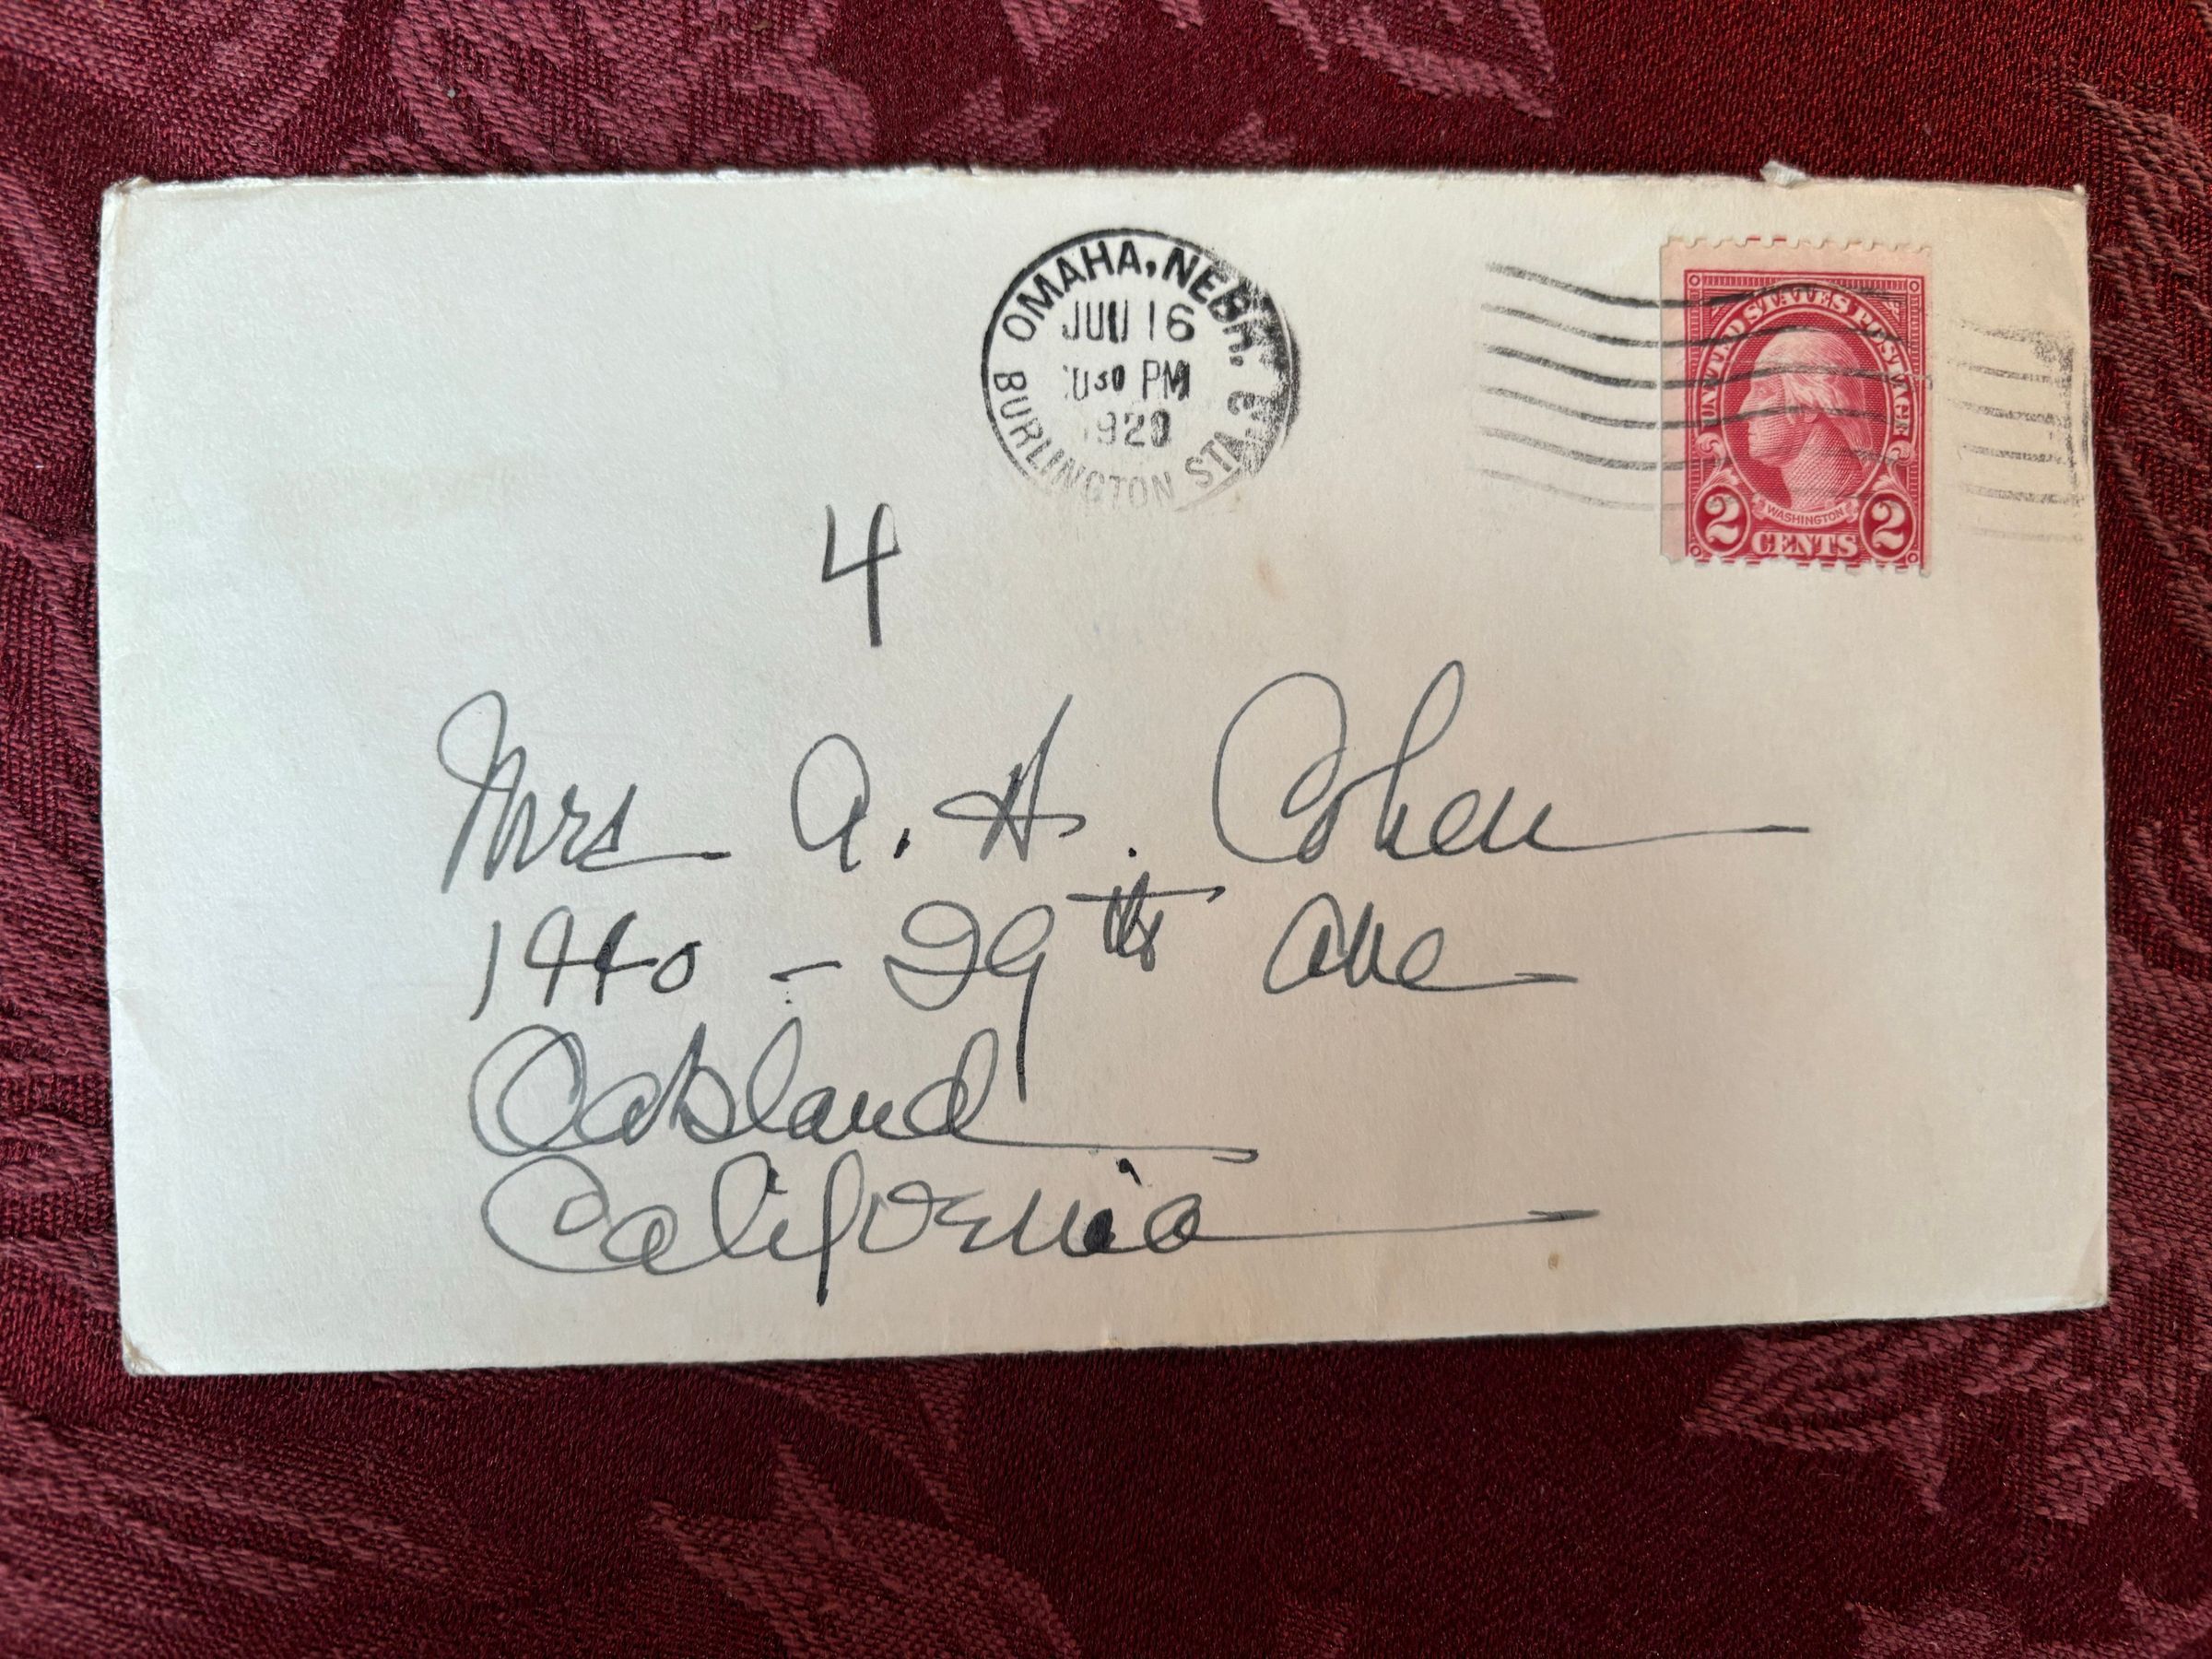 OMAHA, NEBR.
JUN 16
30 PM
BURLINGTON STA.
UNITED STATES POSTAGE
WASHINGTON
2 CENTS 2
4
Mrs A. H. Cohen
1440 - 29th Ave
Oakland
California